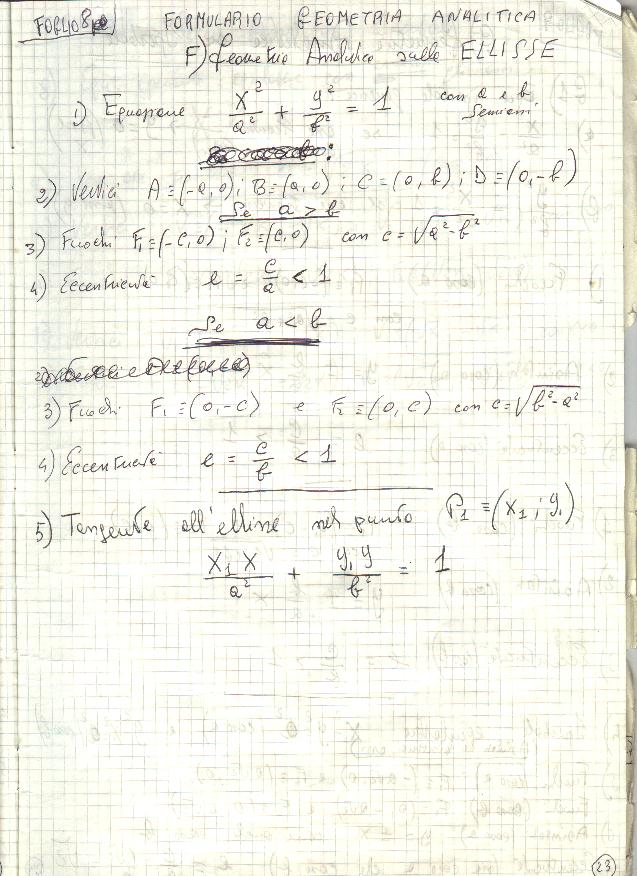 FOGLIO 8 FORMULARIO GEOMETRIA ANALITICA
F) Geometria Analitica sulla ELLISSE
1) Equazione x²/a² + y²/b² = 1 con a e b
Semiassi
:
2) Vertici A≡(-a,0); B≡(a,0); C≡(0,b); D≡(0,-b)
Se a > b
3) Fuochi F₁≡(-c,0); F₂≡(c,0) con c=√a²-b²
4) Eccentricità e = c/a < 1
Se a < b
3) Fuochi F₁≡(0,-c) e F₂≡(0,c) con c=√b²-a²
4) Eccentricità e = c/b < 1
5) Tangente all'ellisse nel punto P₁≡(x₁; y₁)
x₁x/a² + y₁y/b² = 1
23